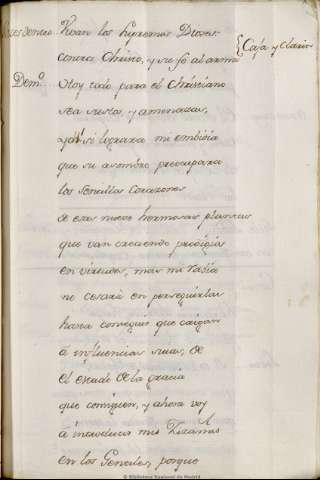 Voces dentro. Vivan los supremos Dioses
contra Christo, y su fé al arma {Caja y Clarin
Demo. Oy todo para el Christiano
sea susto, y amenazas,
y si lograra mi embidia
que su asombro preocupara
los sencillos corazones
de esas nueve hermosas plantas
que van creciendo prodigia
en virtudes, mas mi rabia
no cesará en perseguirlas
hasta conseguir que caigan
á influencias mias, de
el estado de la gracia
que consiguen, y ahora voy
á introducir mis Zizañas
en los Gentiles, porque
© Biblioteca Nacional de Madrid